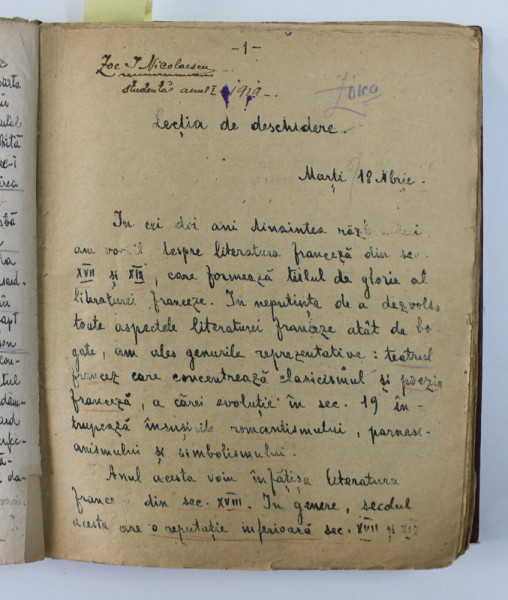 -1-
Zoe I Nicolaescu
studentă anul I 1919.
Zoica
Lecția de deschidere.
Marți 18 Nbrie.
In cei doi ani dinaintea
am vorbit despre literatura franceză din sec.
XVII și XIX, care formează titlul de glorie al
literaturei franceze. In neputința de a dezvolta
toate aspectele literaturei franceze atât de bo-
gate, am ales genurile reprezentative: teatrul
francez care concentrează clasicismul și poezia
franceză, a cărei evoluție în sec. 19 în-
trupează însușirile romantismului, parnasi-
anismului și simbolismului.
Anul acesta voiu înfățișa literatura
franc din sec. XVIII. In genere, secolul
acesta are o reputație inferioară sec. XVII și XIX